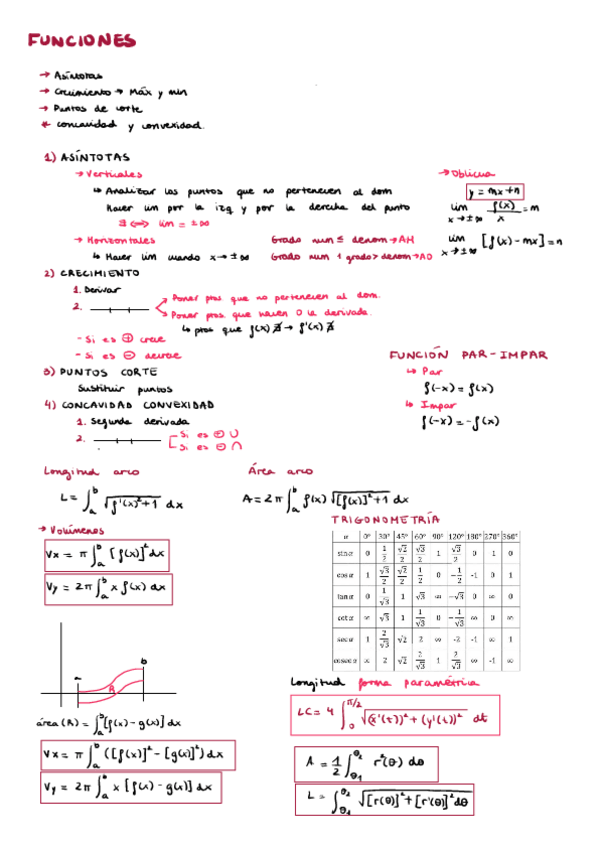 FUNCIONES
→ Asíntotas
→ Crecimiento → Máx y min
→ Puntos de corte
* concavidad y convexidad.
1) ASÍNTOTAS
→ Verticales
↳ Analizar los puntos que no pertenecen al dom
Hacer lim por la izq y por la derecha del punto
∃ ⟺ lim = ±∞
→ Horizontales
↳ Hacer lim cuando x→±∞
Grado num ≤ denom → AH
Grado num 1 grado > denom → AO
→ Oblicua
y = mx+n
lim x→±∞ f(x)/x = m
lim x→±∞ [f(x)-mx] = n
2) CRECIMIENTO
1. Derivar
2.
Poner ptos que no pertenecen al dom.
Poner ptos que hacen 0 la derivada.
↳ ptos que f(x) ∄ → f'(x) ∄
- Si es ⊕ crece
- Si es ⊖ decrece
3) PUNTOS CORTE
Sustituir puntos
4) CONCAVIDAD CONVEXIDAD
1. Segunda derivada
2.
Si es ⊕ ∪
Si es ⊖ ∩
FUNCIÓN PAR-IMPAR
↳ Par
f(-x) = f(x)
↳ Impar
f(-x) = -f(x)
Longitud arco
L = ∫ₐᵇ √(f'(x)²+1) dx
Área arco
A = 2π ∫ₐᵇ f(x) √([f(x)]²+1) dx
→ Volúmenes
Vx = π ∫ₐᵇ [f(x)]² dx
Vy = 2π ∫ₐᵇ x f(x) dx
TRIGONOMETRÍA
α 0° 30° 45° 60° 90° 120° 180° 270° 360°
sin α 0 1/2 √2/2 √3/2 1 √3/2 0 1 0
cos α 1 √3/2 √2/2 1/2 0 -1/2 -1 0 1
tan α 0 1/√3 1 √3 ∞ -√3 0 ∞ 0
cot α ∞ √3 1 1/√3 0 -1/√3 ∞ 0 ∞
sec α 1 2/√3 √2 2 ∞ -2 -1 ∞ 1
cosec α ∞ 2 √2 2/√3 1 2/√3 ∞ -1 ∞
a
R
b
área (R) = ∫ₐᵇ [f(x) - g(x)] dx
Vx = π ∫ₐᵇ ([f(x)]² - [g(x)]²) dx
Vy = 2π ∫ₐᵇ x [f(x) - g(x)] dx
Longitud forma paramétrica
LC = 4 ∫₀^(π/2) √((x'(t))² + (y'(t))²) dt
A = 1/2 ∫_θ1^θ2 r²(θ) dθ
L = ∫_θ1^θ2 √([r(θ)]² + [r'(θ)]²) dθ